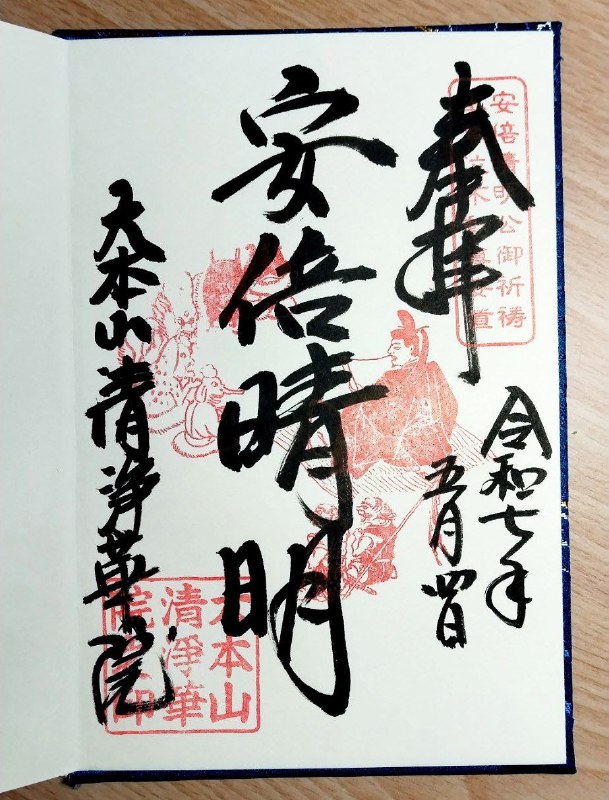 奉拝
安倍晴明公御祈祷
令和七年
五月四日
安倍晴明
大本山清浄華院
大本山
清淨華
院
印